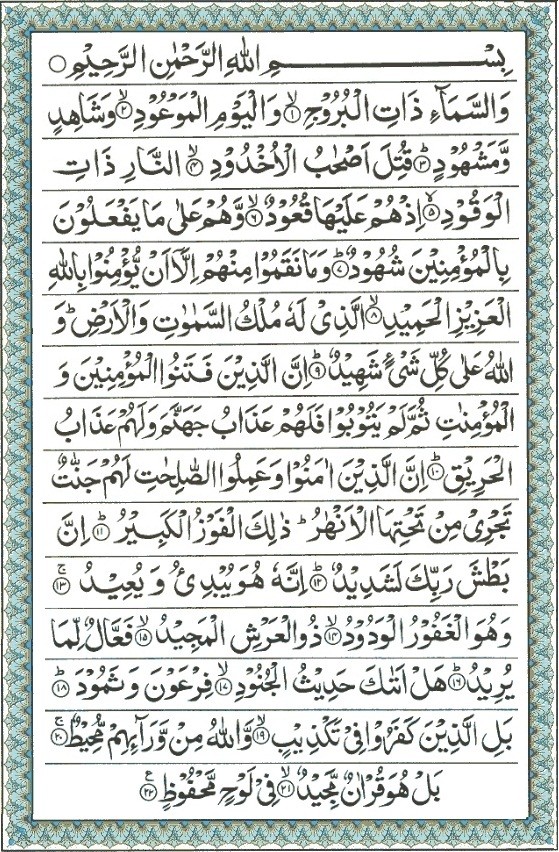 بِسْــــــــمِ اللهِ الرَّحْمٰنِ الرَّحِيْمِ ○
وَالسَّمَآءِ ذَاتِ الْبُرُوْجِ ۙ﴿۱﴾ وَالْيَوْمِ الْمَوْعُوْدِ ۙ﴿۲﴾ وَشَاهِدٍ
وَّمَشْهُوْدٍ ؕ﴿۳﴾ قُتِلَ اَصْحٰبُ الْاُخْدُوْدِ ۙ﴿۴﴾ النَّارِ ذَاتِ
الْوَقُوْدِ ۙ﴿۵﴾ اِذْ هُمْ عَلَيْهَا قُعُوْدٌ ۙ﴿۶﴾ وَّهُمْ عَلٰى مَا يَفْعَلُوْنَ
بِالْمُؤْمِنِيْنَ شُهُوْدٌ ؕ﴿۷﴾ وَمَا نَقَمُوْا مِنْهُمْ اِلَّاۤ اَنْ يُّؤْمِنُوْا بِاللهِ
الْعَزِيْزِ الْحَمِيْدِ ۙ﴿۸﴾ الَّذِيْ لَهٗ مُلْكُ السَّمٰوٰتِ وَالْاَرْضِ ؕ وَ
اللهُ عَلٰى كُلِّ شَيْءٍ شَهِيْدٌ ؕ﴿۹﴾ اِنَّ الَّذِيْنَ فَتَنُوا الْمُؤْمِنِيْنَ وَ
الْمُؤْمِنٰتِ ثُمَّ لَمْ يَتُوْبُوْا فَلَهُمْ عَذَابُ جَهَنَّمَ وَلَهُمْ عَذَابُ
الْحَرِيْقِ ؕ﴿۱۰﴾ اِنَّ الَّذِيْنَ اٰمَنُوْا وَعَمِلُوا الصّٰلِحٰتِ لَهُمْ جَنّٰتٌ
تَجْرِيْ مِنْ تَحْتِهَا الْاَنْهٰرُ ؕ ذٰلِكَ الْفَوْزُ الْكَبِيْرُ ؕ﴿۱۱﴾ اِنَّ
بَطْشَ رَبِّكَ لَشَدِيْدٌ ؕ﴿۱۲﴾ اِنَّهٗ هُوَ يُبْدِئُ وَ يُعِيْدُ ۚ﴿۱۳﴾
وَهُوَ الْغَفُوْرُ الْوَدُوْدُ ۙ﴿۱۴﴾ ذُو الْعَرْشِ الْمَجِيْدُ ۙ﴿۱۵﴾ فَعَّالٌ لِّمَا
يُرِيْدُ ؕ﴿۱۶﴾ هَلْ اَتٰىكَ حَدِيْثُ الْجُنُوْدِ ۙ﴿۱۷﴾ فِرْعَوْنَ وَ ثَمُوْدَ ؕ﴿۱۸﴾
بَلِ الَّذِيْنَ كَفَرُوْا فِيْ تَكْذِيْبٍ ۙ﴿۱۹﴾ وَّاللهُ مِنْ وَّرَآئِهِمْ مُّحِيْطٌ ۚ﴿۲۰﴾
بَلْ هُوَ قُرْاٰنٌ مَّجِيْدٌ ۙ﴿۲۱﴾ فِيْ لَوْحٍ مَّحْفُوْظٍ ع﴿۲۲﴾